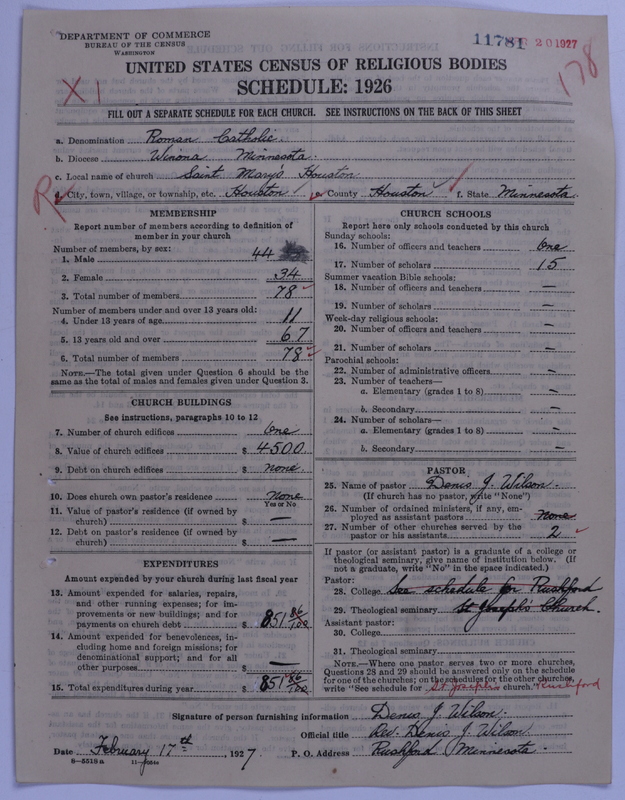 DEPARTMENT OF COMMERCE
BUREAU OF THE CENSUS
WASHINGTON
11781 20 1927
178
X 1
UNITED STATES CENSUS OF RELIGIOUS BODIES
SCHEDULE: 1926
FILL OUT A SEPARATE SCHEDULE FOR EACH CHURCH. SEE INSTRUCTIONS ON THE BACK OF THIS SHEET
a. Denomination Roman Catholic.
b. Diocese Winona Minnesota.
c. Local name of church Saint Mary's Houston
d. City, town, village, or township, etc. Houston e. County Houston f. State Minnesota.
MEMBERSHIP
Report number of members according to definition of member in your church
Number of members, by sex:
1. Male 44
2. Female 34
3. Total number of members 78
Number of members under and over 13 years old:
4. Under 13 years of age 11
5. 13 years old and over 67
6. Total number of members 78
NOTE.—The total given under Question 6 should be the same as the total of males and females given under Question 3.
CHURCH BUILDINGS
See instructions, paragraphs 10 to 12
7. Number of church edifices One
8. Value of church edifices $ 4500
9. Debt on church edifices $ none.
10. Does church own pastor's residence none
Yes or No
11. Value of pastor's residence (if owned by church) $ —
12. Debt on pastor's residence (if owned by church) $ —
EXPENDITURES
Amount expended by your church during last fiscal year
13. Amount expended for salaries, repairs, and other running expenses; for improvements or new buildings; and for payments on church debt $ 851 86/100
14. Amount expended for benevolences, including home and foreign missions; for denominational support; and for all other purposes $ —
15. Total expenditures during year $ 851 86/100
CHURCH SCHOOLS
Report here only schools conducted by this church
Sunday schools:
16. Number of officers and teachers One
17. Number of scholars 15
Summer vacation Bible schools:
18. Number of officers and teachers —
19. Number of scholars —
Week-day religious schools:
20. Number of officers and teachers —
21. Number of scholars —
Parochial schools:
22. Number of administrative officers —
23. Number of teachers—
a. Elementary (grades 1 to 8) —
b. Secondary —
24. Number of scholars—
a. Elementary (grades 1 to 8) —
b. Secondary —
PASTOR
25. Name of pastor Denis J. Wilson.
(If church has no pastor, write "None")
26. Number of ordained ministers, if any, employed as assistant pastors none
27. Number of other churches served by the pastor or his assistants 2
If pastor (or assistant pastor) is a graduate of a college or theological seminary, give name of institution below. (If not a graduate, write "No" in the space indicated.)
Pastor:
28. College See schedule for Rushford
29. Theological seminary St Josephs Church.
Assistant pastor:
30. College
31. Theological seminary
NOTE.—Where one pastor serves two or more churches, Questions 28 and 29 should be answered only on the schedule for one of the churches; on the schedules for the other churches, write "See schedule for St Josephs church." Rushford
Signature of person furnishing information Denis J. Wilson.
Official title Rev. Denis J. Wilson.
Date February 17th, 1927 P. O. Address Rushford Minnesota.
8—5519 a